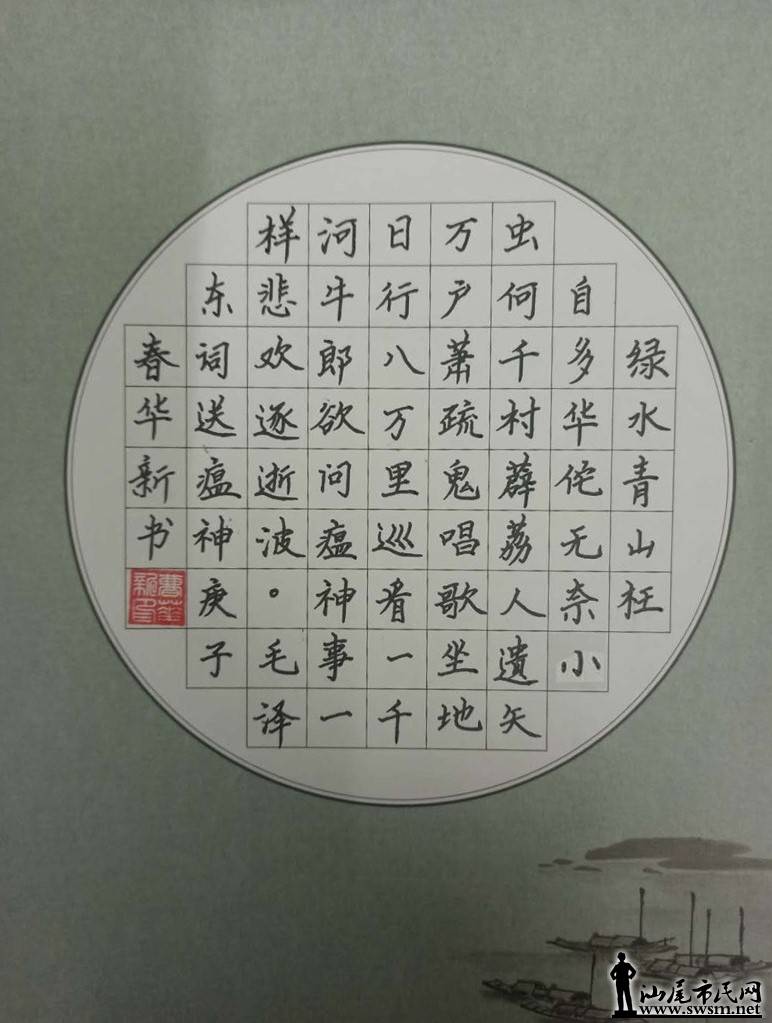 绿水青山枉
自多华佗无奈小
虫何千村薜荔人遗矢
万户萧疏鬼唱歌坐地
日行八万里巡看一千
河牛郎欲问瘟神事一
样悲欢逐逝波。毛泽
东词送瘟神庚子
春华新书
汕尾市民网
www.swsm.net